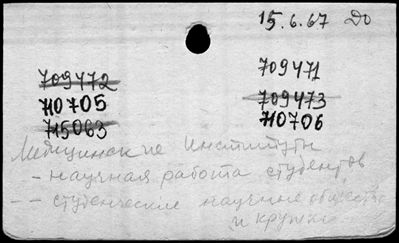 15.6.67 До
709472
110705
715063
709471
709473
110706
Медицинские институты
- научная работа студентов
-- студенческие научные общества
и кружки